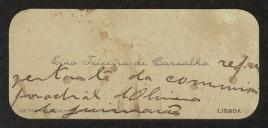 Lino Teixeira de Carvalho repre
sentante da commissão
parochial d'Oliveira
de Guimarães
LISBOA